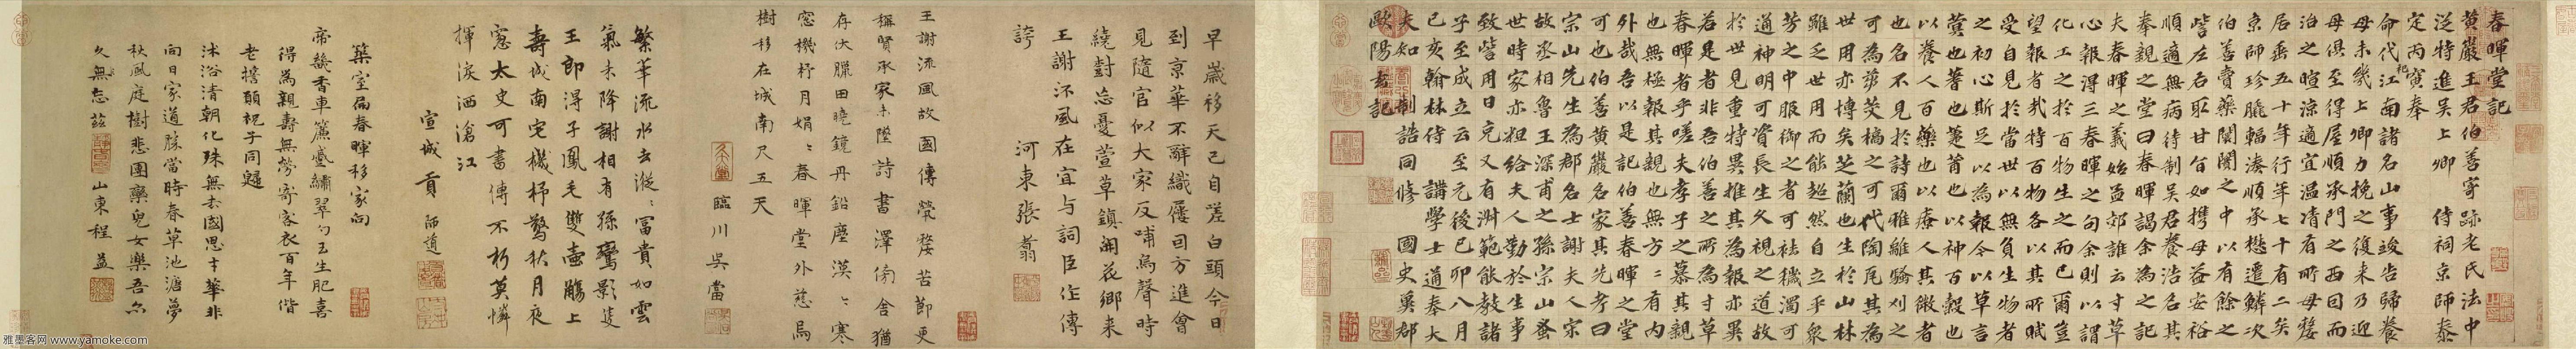 春暉堂記
黃巖王君伯善寄跡老氏法中
泛特進吳上卿 侍祠京師泰
定丙寅奉
命代祀江南諸名山事竣告歸養
母未幾上卿力挽之復来乃迎
母俱至得屋順承門之西因而
治之暄涼適宜温凊有所母嫠
居垂五十年行年七十有二矣
京師珍脆輻湊順承懋遷鱗次
伯善賣藥闤闠之中以有餘之
訾左右取甘旨如攜母益安裕
順適無病待制吳君養浩名其
奉親之堂曰春暉謁余為之記
夫春暉之義始孟郊誰云寸草
心報得三春暉之句余則以謂
化工之於百物生之而已爾豈
望報者哉特百物各以其所賦
受自見於當世以無負生物者
之初心斯足以為報今以草言
蓂也蓍也萐莆也以神百穀也
以養人百藥也以療人其微者
也名不見於詩爾雅離騷刈之
可為蒭茭槁之可代陶瓦其為
世用亦博矣芝蘭也生於山林
雖乏世用而能超然自立乎衆
芳之中服御之者可祛穢濁可
通神明可資長生久視之道故
於世見重特異推其為報亦異
若是者非吾伯善之所為寸草
春暉者乎嗟夫孝子之慕其親
也無極報其親也無方〻有内
外哉吾以是記伯善春暉之堂
可也伯善黃巖名家其先考曰
宗山先生為郡名士謝夫人宗
故丞相魯王深甫之孫宗山蚤
世時家亦粗給夫人勤於生事
致訾用日充又有淵範能教諸
子至成立云至元後己卯八月
己亥翰林侍講學士通奉大
夫知制誥同修國史冀郡
歐陽玄記
早歲移天已自嗟白頭今日
到京華不辭織屨司方進會
見隨官似大家反哺烏聲時
繞樹忘憂萱草鎮開花鄉來
王謝流風在宜与詞臣作傳
誇 河東張翥
王謝流風故國傳煢嫠苦節更
稱賢承家未墜詩書澤傍舍猶
存伏臘田曉鏡丹鉛塵漠〻寒
窓機杼月娟〻春暉堂外慈烏
樹移在城南尺五天
臨川吳當
繁華流水去漎〻富貴如雲
氣未降謝相有孫鸞影隻
王郎淂子鳳毛雙壺觴上
壽城南宅機杼驚秋月夜
窓太史可書傳不朽莫憐
揮淚洒滄江
宣城貢師道
築室扁春暉移家向
帝畿香車簾臺繡翠勺玉生肥喜
得為親壽無勞寄客衣百年偕
老擔願祝子同歸
沭浴清朝化殊無去國思寸華非
向日家道勝當時春草池溏夢
秋風庭樹悲團欒兒女樂吾亦
久無忘茲 山東程益
雅墨客网 www.yamoke.com